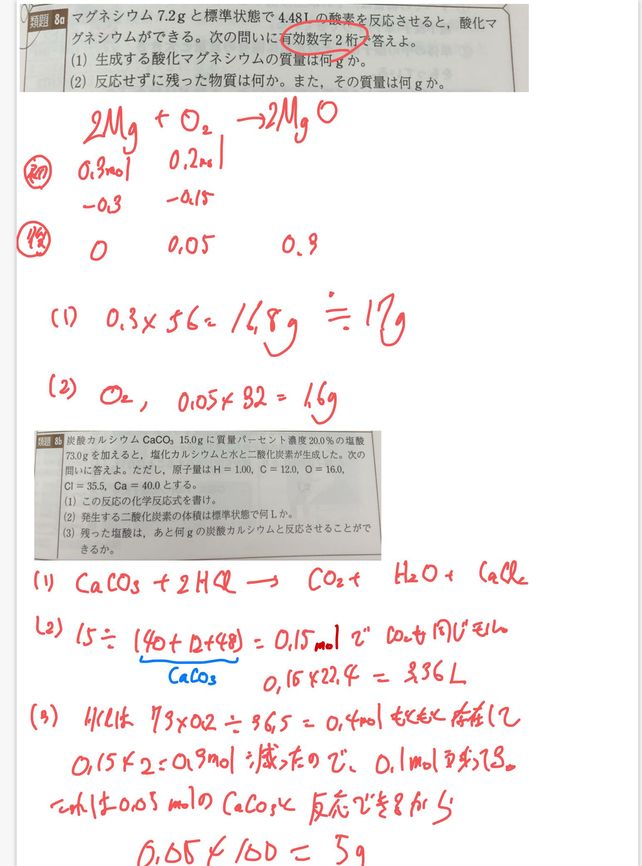 類題 8a マグネシウム 7.2g と標準状態で 4.48L の酸素を反応させると，酸化マ
グネシウムができる。次の問いに有効数字2桁で答えよ。
(1) 生成する酸化マグネシウムの質量は何gか。
(2) 反応せずに残った物質は何か。また，その質量は何gか。
2Mg + O₂ → 2MgO
初 0.3mol 0.2mol
-0.3 -0.15
後 0 0.05 0.3
(1) 0.3×56=16.8g ≒17g
(2) O₂, 0.05×32=1.6g
類題 8b 炭酸カルシウム CaCO₃ 15.0gに質量パーセント濃度20.0%の塩酸
73.0gを加えると，塩化カルシウムと水と二酸化炭素が生成した。次の
問いに答えよ。ただし，原子量は H = 1.00，C = 12.0，O = 16.0，
Cl = 35.5，Ca = 40.0とする。
(1) この反応の化学反応式を書け。
(2) 発生する二酸化炭素の体積は標準状態で何Lか。
(3) 残った塩酸は，あと何gの炭酸カルシウムと反応させることがで
きるか。
(1) CaCO₃ + 2HCl → CO₂ + H₂O + CaCl₂
(2) 15÷(40+12+48)=0.15molで CO₂も同じモル
CaCO₃
0.15×22.4 = 3.36L
(3) HClは 73×0.2÷36.5=0.4molもともと存在して
0.15×2=0.3mol減ったので、0.1mol残ってる。
これは0.05molのCaCO₃と反応できるから
0.05×100 = 5g